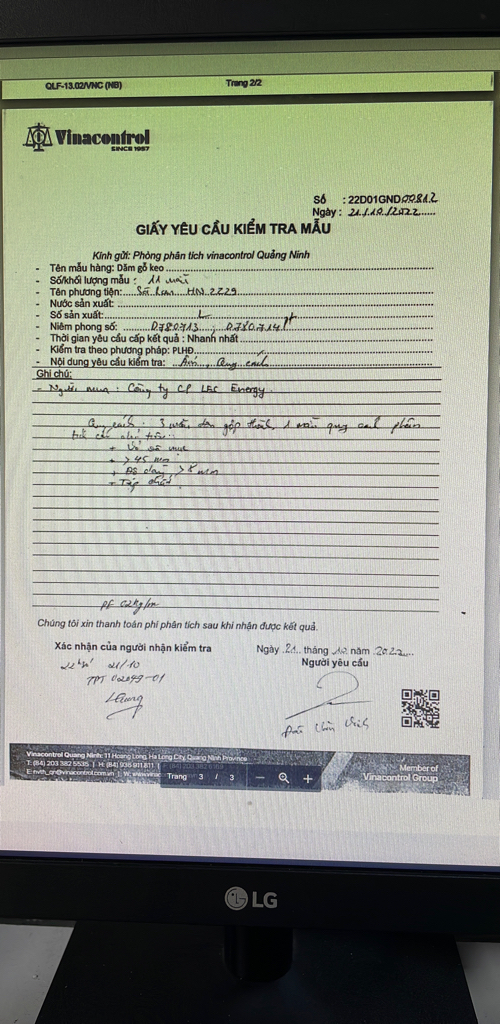 QLF-13.02/VNC (NB) Trang 2/2
Vinacontrol
SINCE 1957
Số : 22D01GND00812
Ngày: 21/10/2022
GIẤY YÊU CẦU KIỂM TRA MẪU
Kính gửi: Phòng phân tích vinacontrol Quảng Ninh
- Tên mẫu hàng: Dăm gỗ keo
- Số/khối lượng mẫu : 11 mẫu
- Tên phương tiện: Sà lan HN 2229
- Nước sản xuất:
- Số sản xuất:
- Niêm phong số: 0780713 ; 0780714
- Thời gian yêu cầu cấp kết quả : Nhanh nhất
- Kiểm tra theo phương pháp: PLHĐ
- Nội dung yêu cầu kiểm tra: Ẩm, Quy cách
Ghi chú:
- Người mua : Công ty CP Energy.
Quy cách : 3 mẫu gộp thành 1 mẫu quy cách phân
+ Vỏ mục
+ >45 mm
+ >8 mm
+ Tạp chất
Chúng tôi xin thanh toán phí phân tích sau khi nhận được kết quả.
Xác nhận của người nhận kiểm tra
Ngày 21 tháng 10 năm 2022
Người yêu cầu
21/10
02049-01
Vinacontrol Quảng Ninh: 11 Hoang Long, Ha Long City, Quang Ninh Province
T: (84) 203 382 5535 | H: (84) 936 911 811 |
E: nvth_qn@vinacontrol.com.vn | W: www.vinac
Trang 3 / 3
Member of
Vinacontrol Group
LG